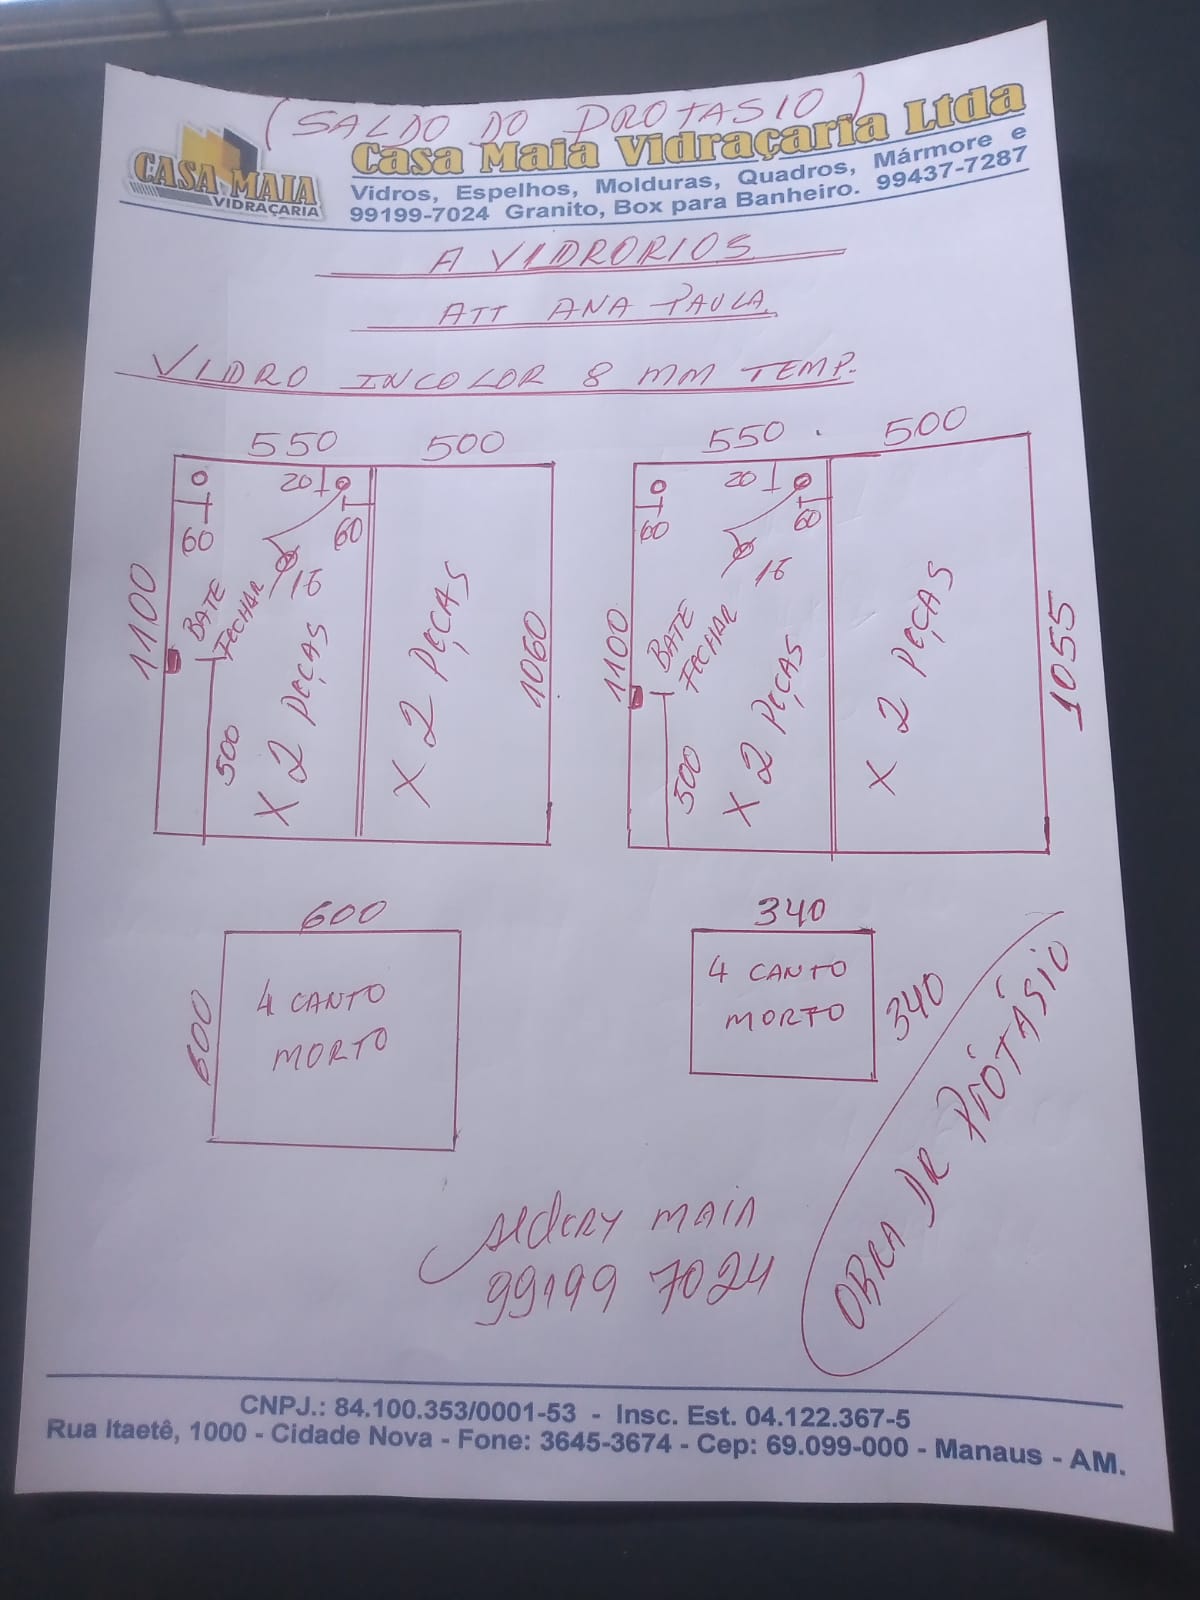 (SALDO DO PROTASIO)
CASA MAIA
VIDRAÇARIA
Casa Maia Vidraçaria Ltda
Vidros, Espelhos, Molduras, Quadros, Mármore e
99199-7024 Granito, Box para Banheiro. 99437-7287
A VIDRORIOS
ATT ANA PAULA.
VIDRO INCOLOR 8 MM TEMP.
550 500
20
60 60
16
1100
BATE
FECHAR
500
X 2 PEÇAS
X 2 PEÇAS
1060
550. 500
20
60 60
16
1100
BATE
FECHAR
500
X 2 PEÇAS
X 2 PEÇAS
1055
600
600
4 CANTO
MORTO
340
4 CANTO
MORTO
340
OBRA DR PROTÁSIO
Aldery MAIA
99199 7024
CNPJ.: 84.100.353/0001-53 - Insc. Est. 04.122.367-5
Rua Itaetê, 1000 - Cidade Nova - Fone: 3645-3674 - Cep: 69.099-000 - Manaus - AM.